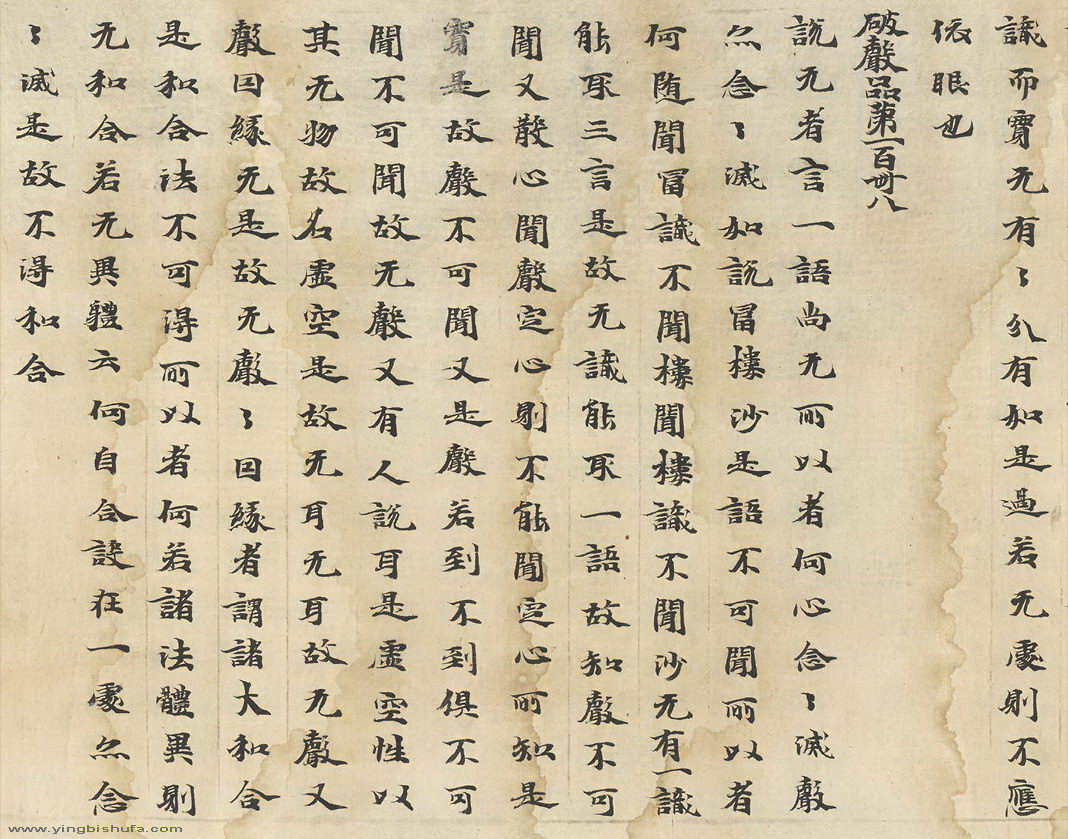 識而實无有〻分有如是過若无處則不應
依眼也
破聲品第一百卌八
說无者言一語尚无所以者何心念〻滅聲
亦念〻滅如說冨樓沙是語不可聞所以者
何随聞冨識不聞樓聞樓識不聞沙无有一識
能取三言是故无識能取一語故知聲不可
聞又散心聞聲定心則不能聞定心所知是
實是故聲不可聞又是聲若到不到俱不可
聞不可聞故无聲又有人說耳是虛空性以
其无物故名虛空是故无耳无耳故无聲又
聲因緣无是故无聲〻因緣者謂諸大和合
是和合法不可得所以者何若諸法體異則
无和合若无異體云何自合設在一處亦念
〻滅是故不得和合
www.yingbishufa.com